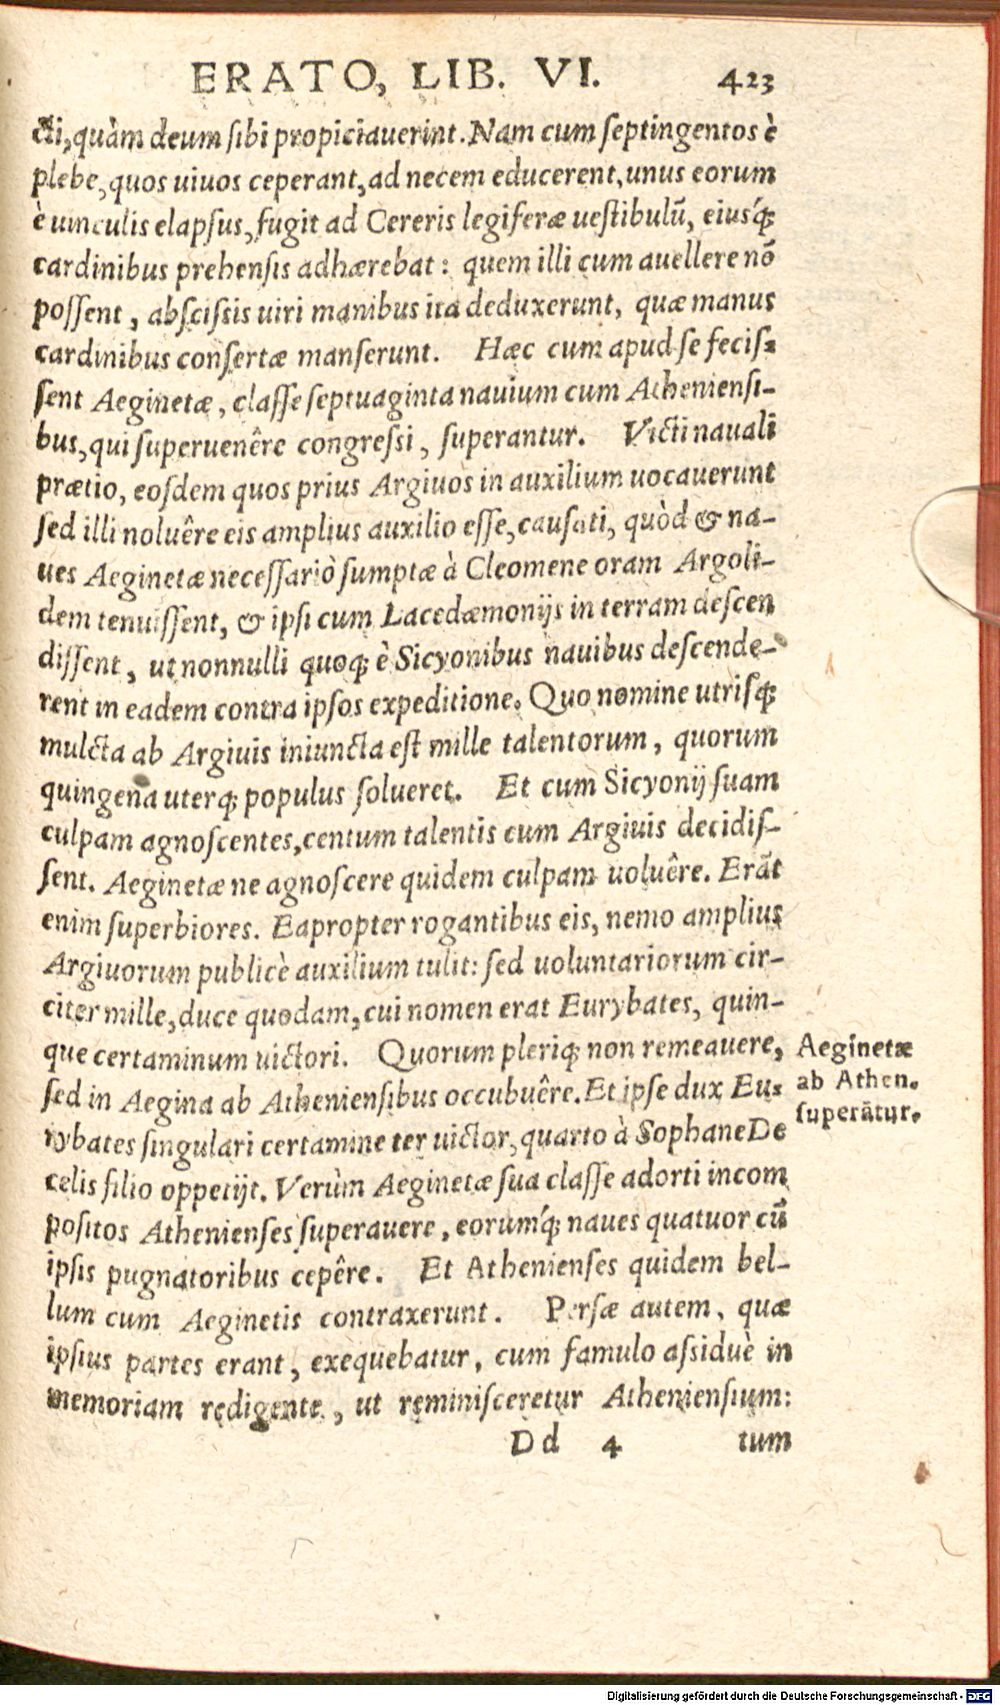 ERATO, LIB. VI. 423
cti, quàm deum sibi propiciauerint. Nam cum septingentos è
plebe, quos uiuos ceperant, ad necem educerent, unus eorum
è uinculis elapsus, fugit ad Cereris legiferæ uestibulũ, eiusq́;
cardinibus prehensis adhærebat: quem illi cum auellere nõ
possent, abscissis uiri manibus ita deduxerunt, quæ manus
cardinibus consertæ manserunt. Hæc cum apud se fecis-
sent Aeginetæ, classe septuaginta nauium cum Atheniensi-
bus, qui superuenêre congressi, superantur. Victi nauali
prætio, eosdem quos prius Argiuos in auxilium uocauerunt
sed illi noluêre eis amplius auxilio esse, causati, quòd & na-
ues Aeginetæ necessariò sumptæ à Cleomene oram Argoli-
dem tenuissent, & ipsi cum Lacedæmonijs in terram descen
dissent, ut nonnulli quoq; è Sicyonibus nauibus descende-
rent in eadem contra ipsos expeditione. Quo nomine utrisq;
mulcta ab Argiuis iniuncta est mille talentorum, quorum
quingena uterq; populus solueret. Et cum Sicyonij suam
culpam agnoscentes, centum talentis cum Argiuis decidis-
sent. Aeginetæ ne agnoscere quidem culpam uoluêre. Erãt
enim superbiores. Eapropter rogantibus eis, nemo amplius
Argiuorum publicè auxilium tulit: sed uoluntariorum cir-
citer mille, duce quodam, cui nomen erat Eurybates, quin-
que certaminum uictori. Quorum pleriq; non remeauere,
sed in Aegina ab Atheniensibus occubuêre. Et ipse dux Eu-
rybates singulari certamine ter uictor, quarto à Sophane De
celis filio oppetijt. Verùm Aeginetæ sua classe adorti incom
positos Athenienses superauere, eorumq́; naues quatuor cũ
ipsis pugnatoribus cepêre. Et Athenienses quidem bel-
lum cum Aeginetis contraxerunt. Persæ autem, quæ
ipsius partes erant, exequebatur, cum famulo assiduè in
memoriam redigente, ut reminisceretur Atheniensium:
Dd 4 tum
Aeginetæ
ab Athen.
superãtur.
Digitalisierung gefördert durch die Deutsche Forschungsgemeinschaft - DFG